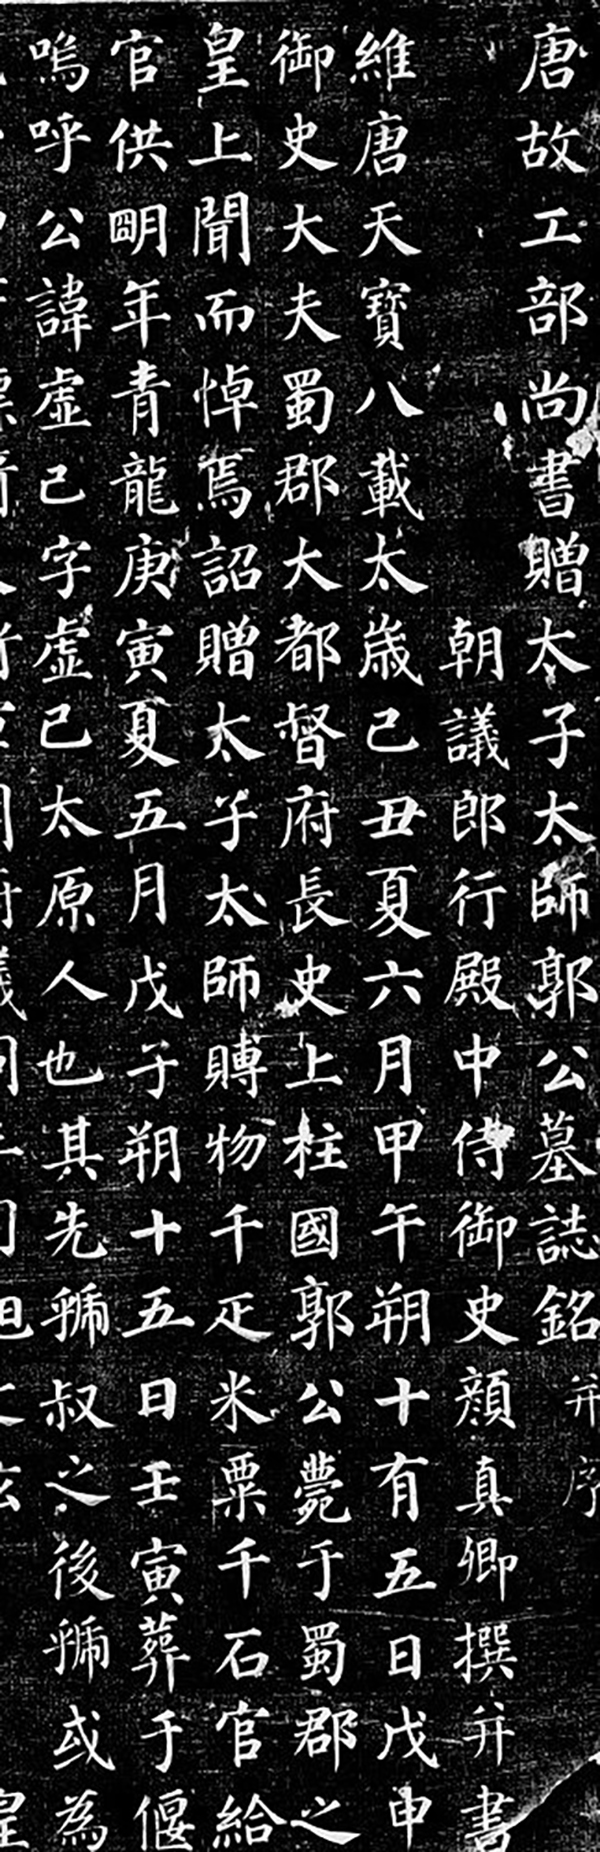 唐故工部尚書贈太子太師郭公墓誌銘并序
朝議郎行殿中侍御史顏真卿撰并書
維唐天寶八載太歲己丑夏六月甲午朔十有五日戊申
御史大夫蜀郡大都督府長史上柱國郭公薨于蜀郡之
皇上聞而悼焉詔贈太子太師賻物千疋米粟千石官給
官供明年青龍庚寅夏五月戊子朔十五日壬寅葬于偃
嗚呼公諱虛己字虛己太原人也其先虢叔之後虢或為